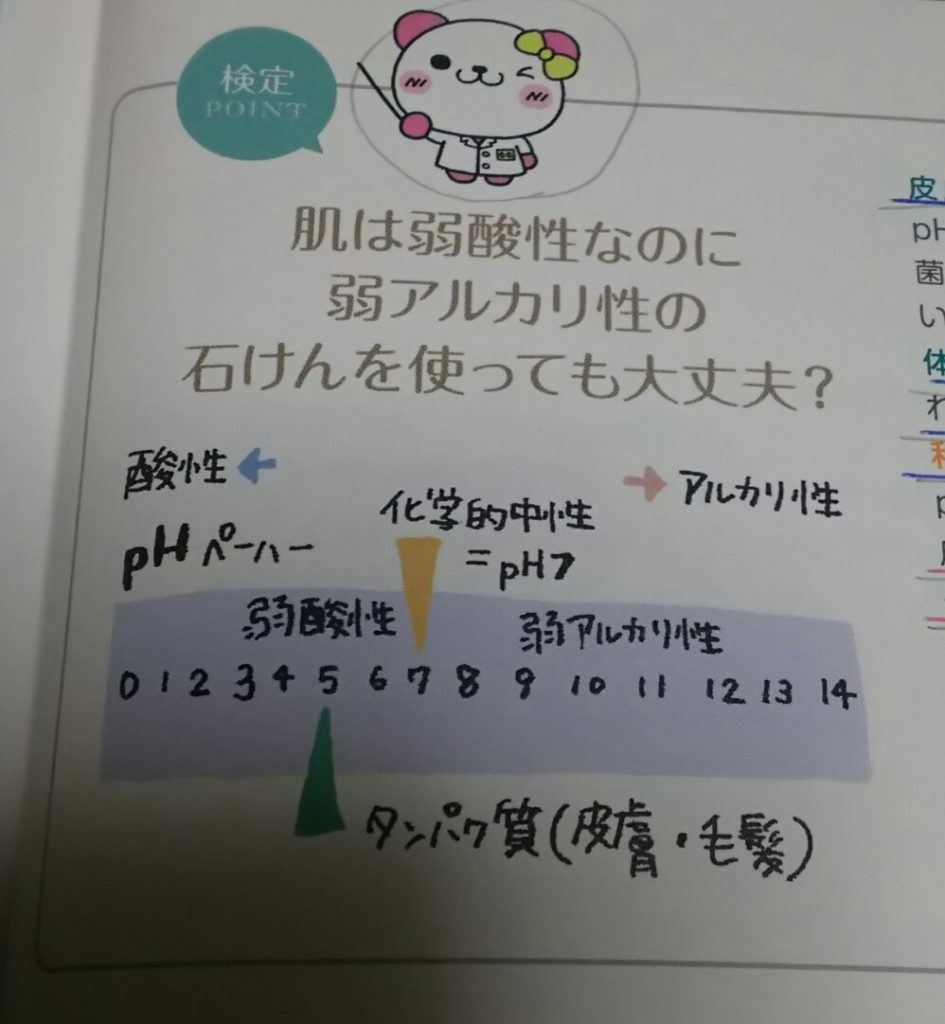 検定
POINT
肌は弱酸性なのに
弱アルカリ性の
石けんを使っても大丈夫？
酸性
アルカリ性
化学的中性
=pH7
pHペーハー
弱酸性
弱アルカリ性
0 1 2 3 4 5 6 7 8 9 10 11 12 13 14
タンパク質(皮膚・毛髪)
皮
pH
菌
い
体